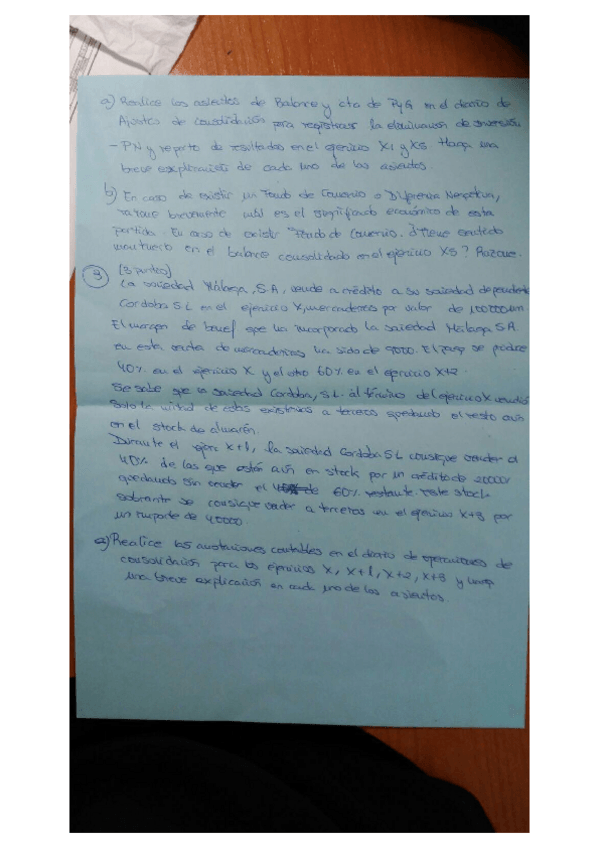 a) Realice los asientos de Balance y cta de PyG en el diario de
Ajustes de consolidación para registrar la eliminación de inversión
- PN y reparto de resultados en el ejercicio X1 y X5. Haga una
breve explicación de cada uno de los asientos.
b) En caso de existir un Fondo de Comercio o Diferencia Negativa,
razone brevemente cuál es el significado económico de esta
partida. En caso de existir Fondo de Comercio, ¿tiene sentido
mantenerlo en el balance consolidado en el ejercicio X5? Razone.
3 (3 puntos)
La sociedad Málaga, S.A, vende a crédito a su sociedad dependiente
Cordoba SL en el ejercicio X, mercaderías por valor de
El margen de benef que ha incorporado la sociedad Málaga SA
en esta venta de mercaderías ha sido de 9000. El pago se produce
40% en el ejercicio X y el otro 60% en el ejercicio X+2.
Se sabe que la sociedad Cordoba, S.L. al término del ejercicio X vendió
solo la mitad de estas existencias a terceros quedando el resto aún
en el stock de almacén.
Durante el ejerc X+1, la sociedad Cordoba SL consigue vender el
40% de las que están aún en stock por un crédito de 20000
quedando sin vender el 60% restante. este stock
sobrante se consigue vender a terceros en el ejercicio X+3 por
un importe de 40000.
a) Realice las anotaciones contables en el diario de operaciones de
consolidación para los ejercicios X, X+1, X+2, X+3 y haga
una breve explicación en cada uno de los asientos.